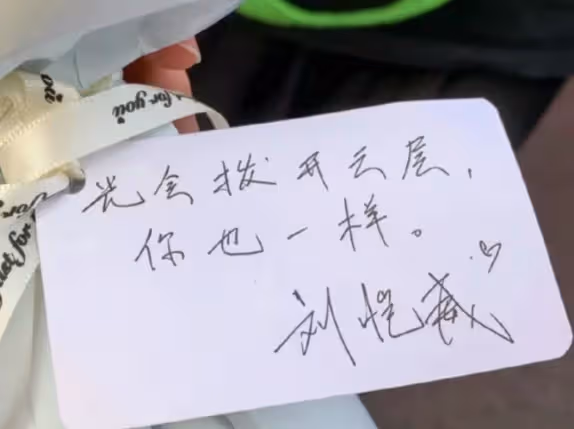 for you
for you
光会拨开云层,
你也一样。
刘恺威